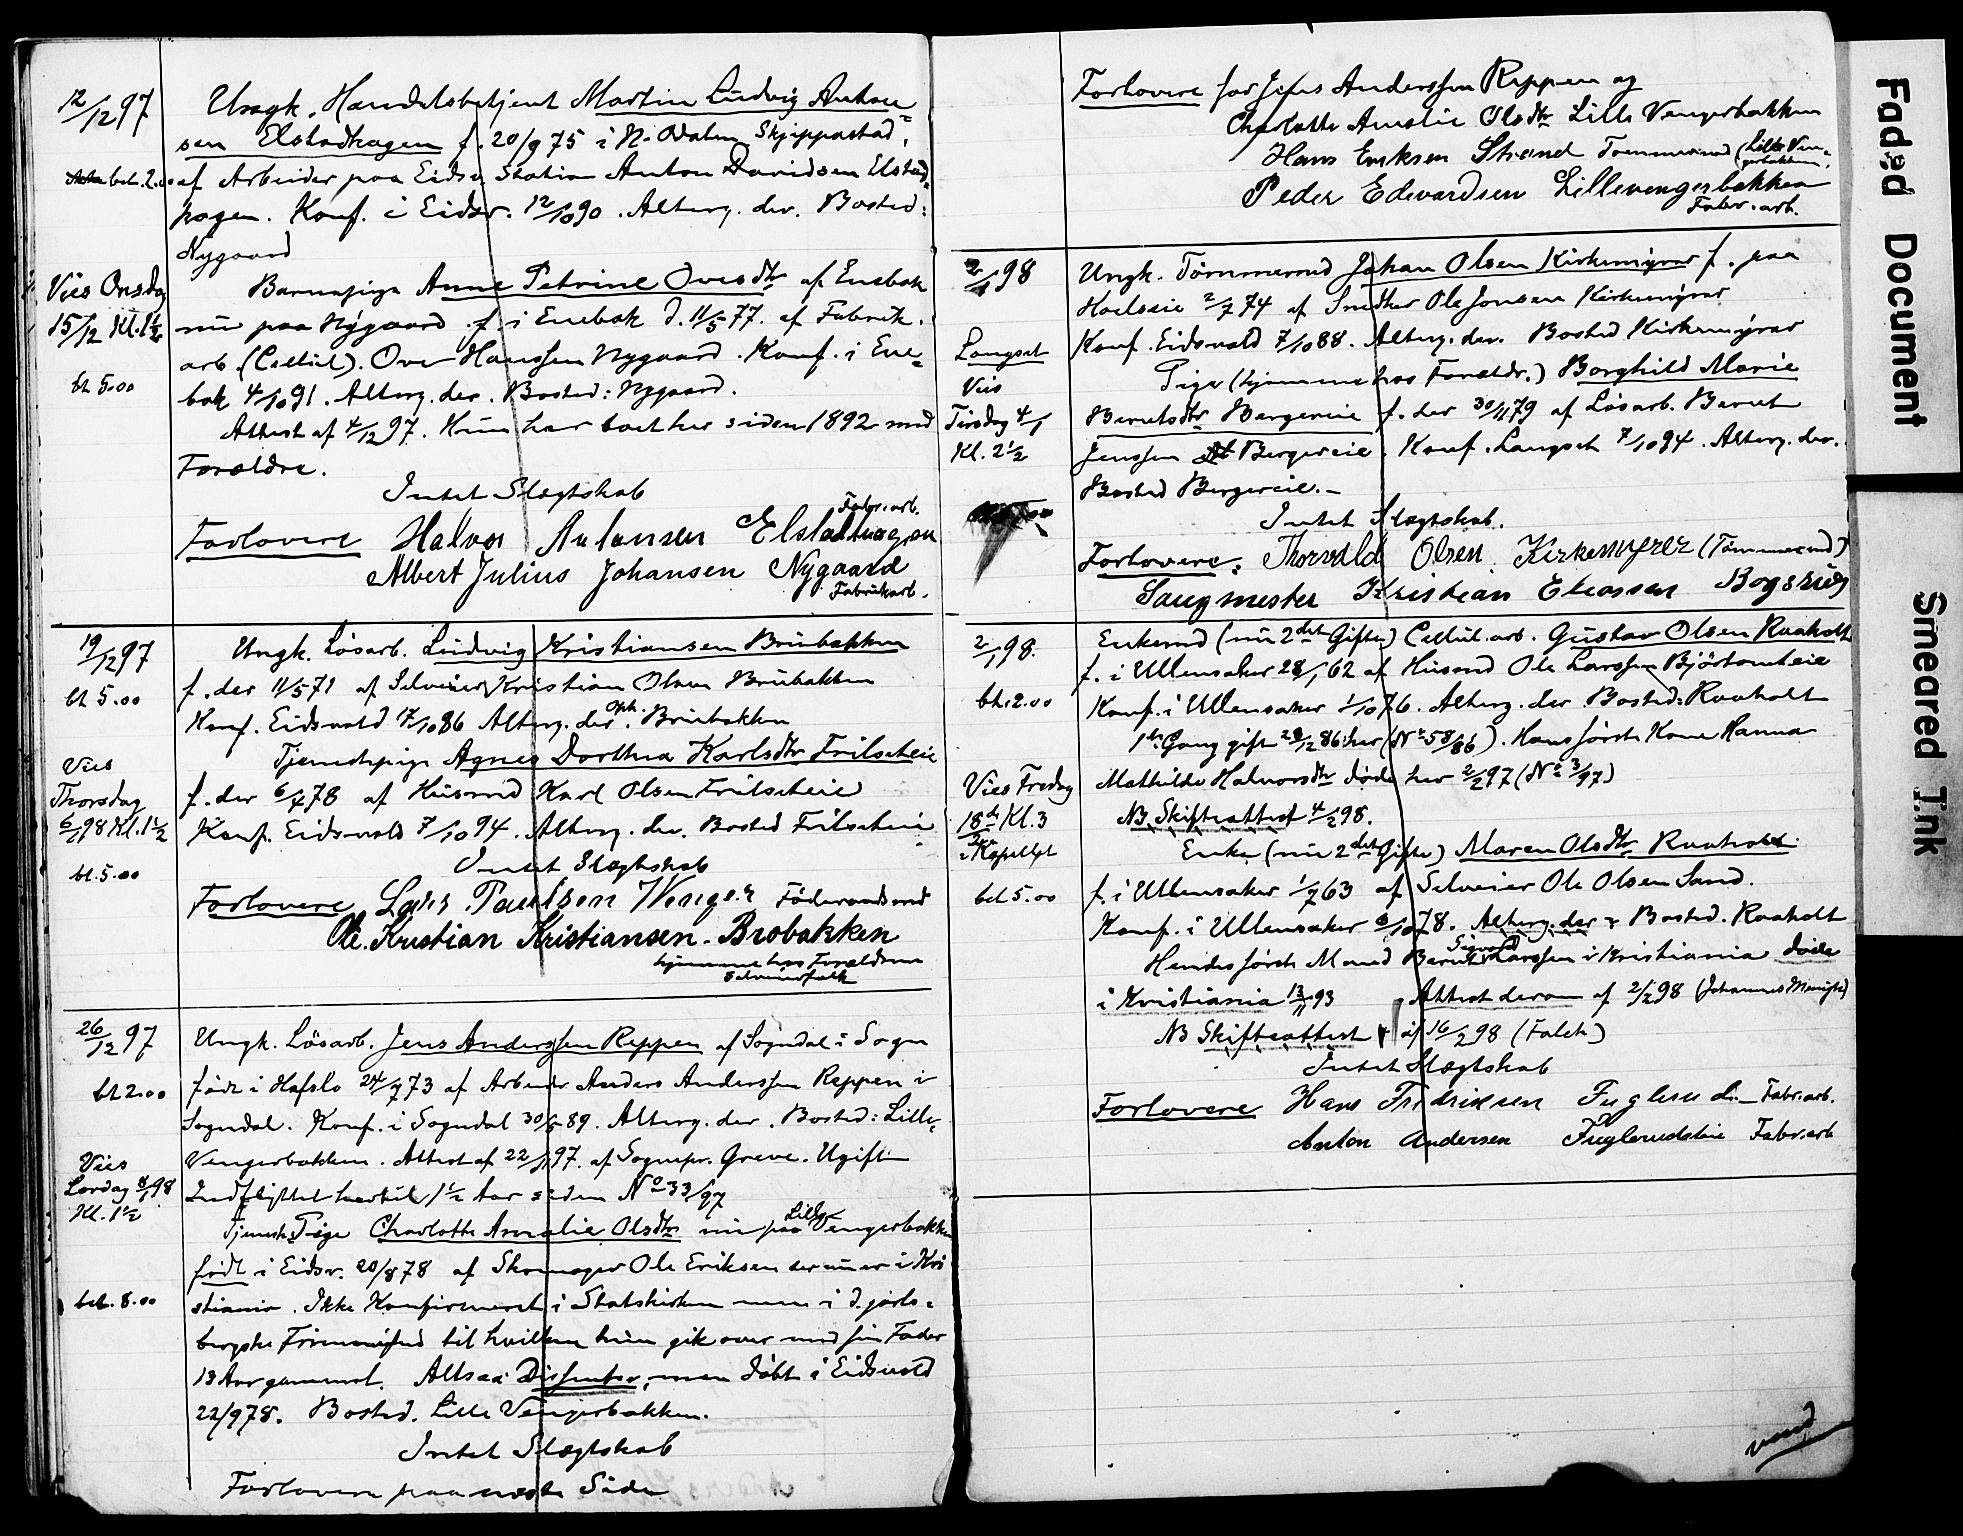 12/12 97
Ungk. Handelsbetjent Martin Ludvig Anton=
sen Elstadhagen f. 20/9 75 i N. Odalen, Skjippastad,
bet. 2.00
af Arbeider paa Eidsv. Station Anton Davidsen Elstad=
hagen. Konf. i Eidsv. 12/10 90. Alterg. der. Bosted:
Nygaard
Vies Onsdag
15/12 Kl. 1½
bt 5.00
Barnepige Anne Petrine Ovesdtr af Enebak
nu paa Nygaard f. i Enebak d. 11/5 77. af Fabrik.
arb. (Cellul). Ove Hanssen Nygaard. Konf. i Ene=
bak 4/10 91. Alterg. der. Bosted: Nygaard.
Attest af 4/12 97. Hun har boet her siden 1892 med
Forældre.
Intet Slægtskab
Fabr. arb.
Forlovere Halvor Antonsen Elstadhagen
Albert Julius Johansen Nygaard
Fabrikarb.
19/12 97
bt 5.00
Vies
Thorsdag
6/1 98 Kl. 1½
bt. 5.00
Ungk. Løsarb. Ludvig Kristiansen Brubakken
f. der 11/5 71 af Selveier Kristian Olsen Brubakken
Konf. Eidsvold 17/10 86 Alterg. der. Oph. Brubakken
Tjenestepige Agnes Dorthea Karlsdtr Fritscheie
f. der 6/4 78 af Husmd Karl Olsen Fritscheie
Konf. Eidsvold 7/10 94. Alterg. der. Bosted Fritscheie
Intet Slægtskab
Forlovere Lars Paulsen Wenger Föderaadsmd
Ole Kristian Kristiansen Brobakken
hjemme hos Forældrene
Selveierfolk
26/12 97
bt 2.00
Vies
Lørdag 8/1 98
Kl. 1½
bet. 8.00
Ungk. Løsarb. Jens Anderssen Reppen af Sogndal i Sogn
født i Hafslo 24/7 73 af Arbeider Anders Anderssen Reppen i
Sogndal. Konf. i Sogndal 30/6 89. Alterg. der. Bosted: Lille=
Vengerbakken. Attest af 22/11 97. af Sognepr. Greve. Ugift
Indflyttet hertil 1½ Aar siden No 33/97
Tjeneste Pige Charlotte Amalie Olsdtr nu paa Lille Vengerbakken
født i Eidsv. 20/8 78 af Skomager Ole Eriksen der nu er i Kri
stiania. Ikke Konfirmeret i Statskirken men i d. jarls=
bergske Frimenighed til hvilken hun gik over med sin Fader
13 Aar gammel. Altsaa Dissenter, men døbt i Eidsvold
22/9 78. Bosted. Lille Vengerbakken.
Intet Slægtskab
Forlovere paa næste Side
Forlovere for Jens Anderssen Reppen og
Charlotte Amalie Olsdtr Lille Vengerbakken
Hans Eriksen Strand Tømmermd (Lille Ven=
gerbakken)
Peder Edevardsen Lillevengerbakken
Fabr. arb.
2/1 98
Langset
Vies
Tirsdag 4/1
Kl. 2½
Ungk. Tømmermd Johan Olsen Kirkemyrer f. paa
Hoelseie 2/7 74 af Snedker Ole Jonsen Kirkemyrer
Konf. Eidsvold 7/10 88. Alterg. der. Bosted Kirkemyrer
Pige (hjemme hos Forældr.) Borghild Marie
Berntsdtr Bergereie f. der 30/11 79 af Løsarb. Bernt
Jenssen Bergereie. Konf. Langset 7/10 94. Alterg. der.
Bosted Bergereie.
Intet Slægtskab.
Forlovere: Thorvald Olsen Kirkemyrer (Tømmermd)
Saugmester Kristian Eliassen Bogsrud
2/1 98.
bt. 2.00
Vies Fredag
18de Kl. 3
i Kapellet
bet 5.00
Enkemd (nu 2det Gifte) Cellul. arb. Gustav Olsen Raaholt
f. i Ullensaker 28/1 62 af Husmd Ole Larssen Bjørtomteie
Konf. i Ullensaker 1/10 76. Alterg. der Bosted: Raaholt
1ste Gang gift 29/12 86 her (No 58/86). Hans første Kone Hanna
Mathilde Halvorsdtr døde her 2/2 97 (No 3/97)
NB Skifteattest 4/2 98.
Enke (nu 2det Gifte) Maren Olsdtr Raaholt.
f. i Ullensaker 1/7 63 af Selveier Ole Olsen Sand.
Konf. i Ullensaker 6/10 78. Alterg. der Bosted. Raaholt
Hendes første Mand Bernt Sigvard Larssen i Kristiania døde
i Kristiania 13/11 93 Attest derom af 2/2 98
NB Skifteattest af 16/2 98 (Falch)
Intet Slægtskab
Forlovere Hans Fredriksen Fuglerud. Fabr. arb.
Anton Andersen Fuglerudeie Fabr. arb
vend
Faded Document
Smeared Ink